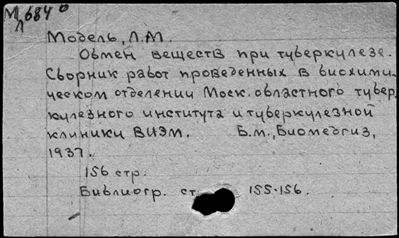 М 684
Л
Модель, Л.М.
Обмен веществ при туберкулезе.
Сборник работ проведенных в биохими-
ческом отделении Моск. областного тубер-
кулезного института и туберкулезной
клиники ВИЭМ. Б.м., Биомедгиз,
1937.
156 стр.
Библиогр. ст 155-156.